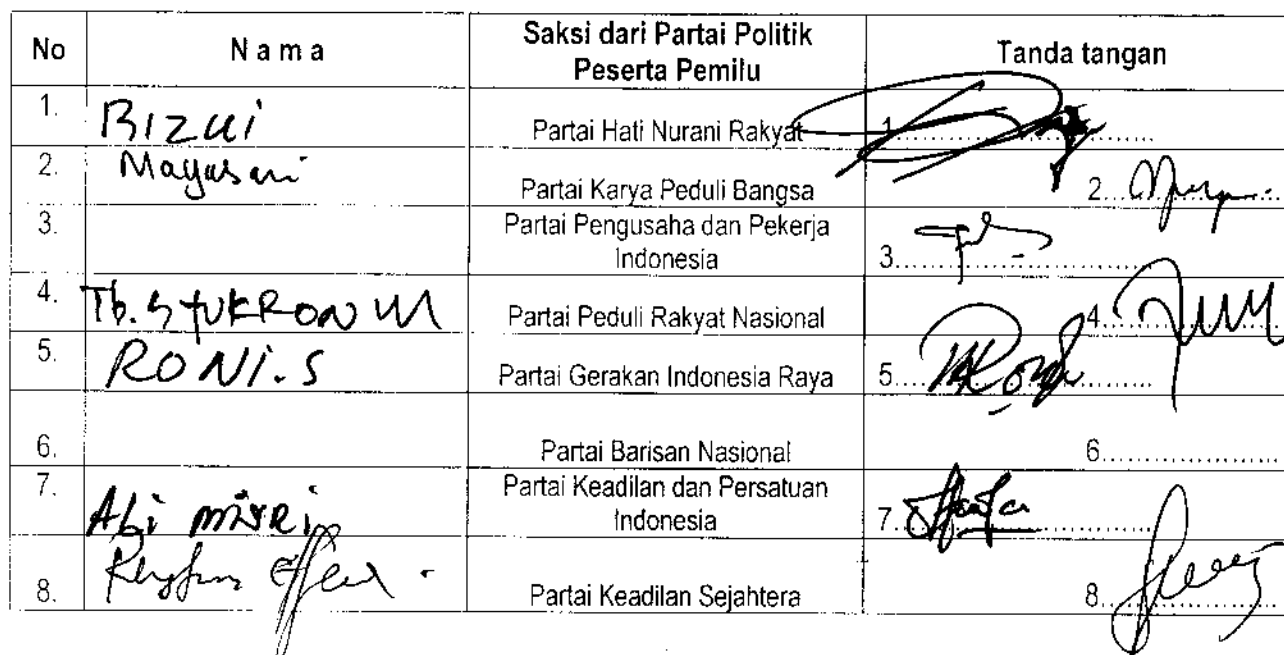 No
N a m a
Saksi dari Partai Politik
Peserta Pemilu
Tanda tangan
1.
Partai Hati Nurani Rakyat
1
2.
Mayasari
Partai Karya Peduli Bangsa
2
3.
Partai Pengusaha dan Pekerja
Indonesia
3
4.
Tb.
Partai Peduli Rakyat Nasional
4
5.
RONI.S
Partai Gerakan Indonesia Raya
5
6.
Partai Barisan Nasional
6
7.
Abi
Partai Keadilan dan Persatuan
Indonesia
7
8.
Partai Keadilan Sejahtera
8